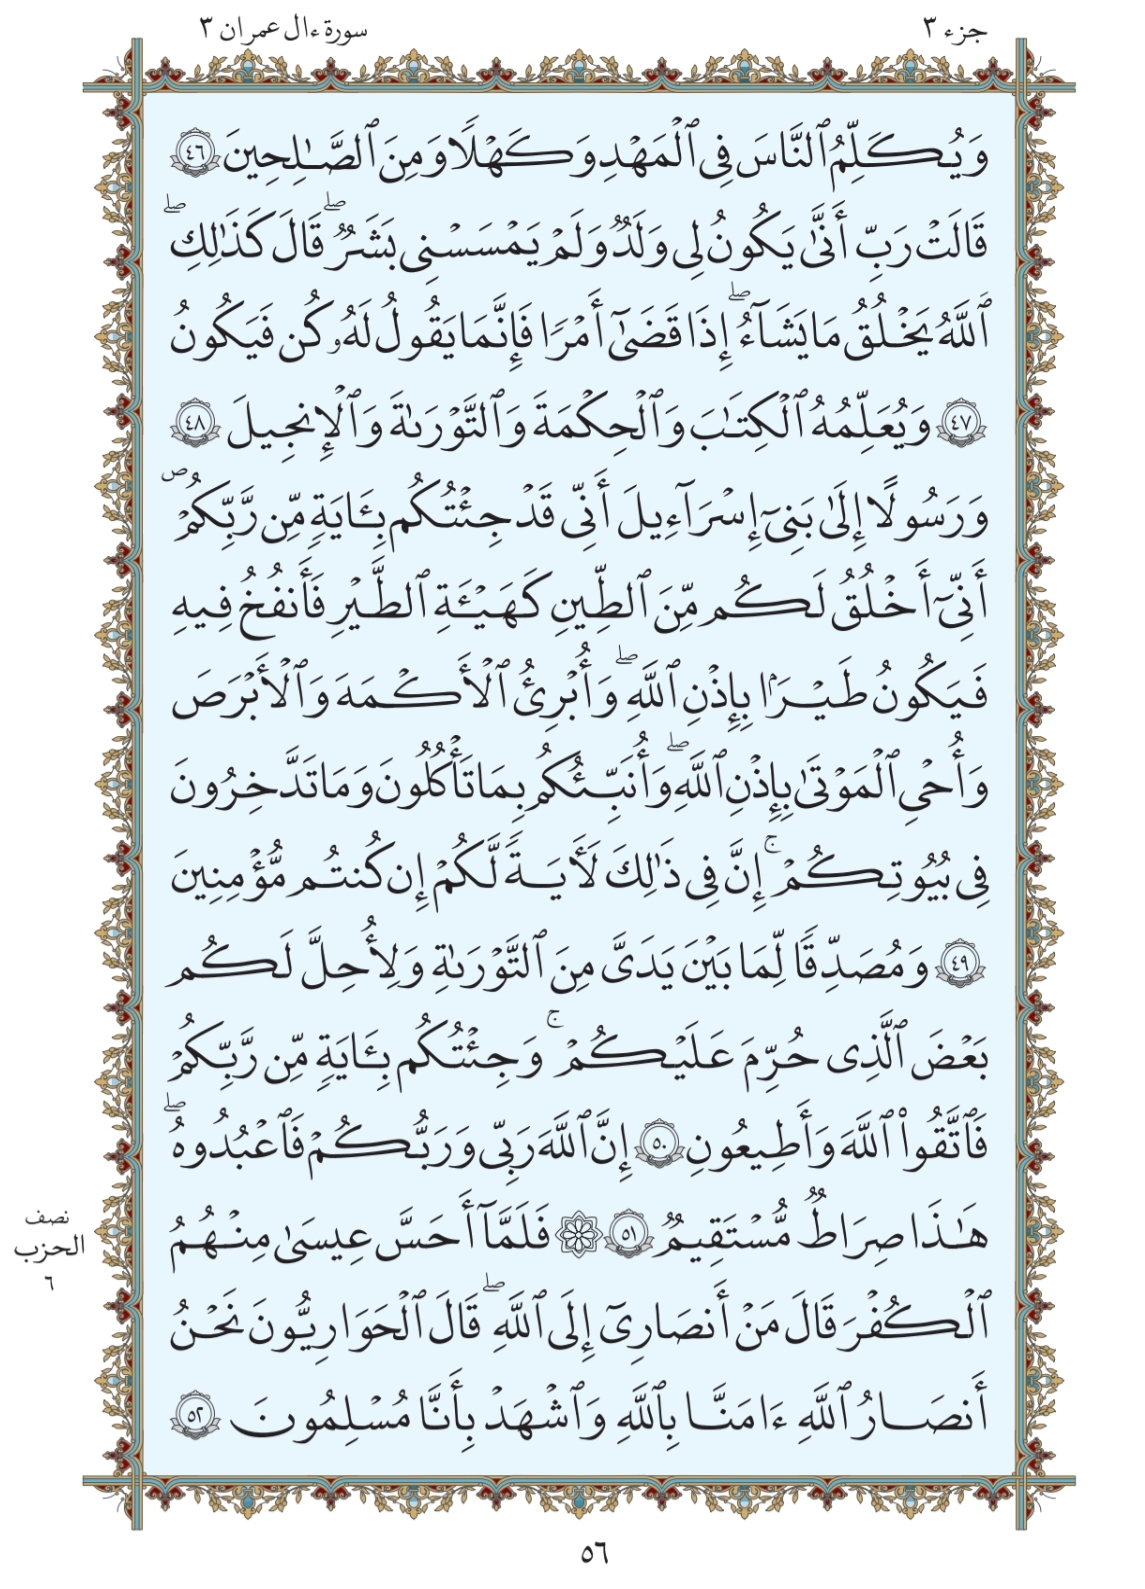 جزء ٣
سورة ءال عمران ٣
وَيُكَلِّمُ ٱلنَّاسَ فِى ٱلْمَهْدِ وَكَهْلًا وَمِنَ ٱلصَّـٰلِحِينَ ٤٦
قَالَتْ رَبِّ أَنَّىٰ يَكُونُ لِى وَلَدٌ وَلَمْ يَمْسَسْنِى بَشَرٌ ۖ قَالَ كَذَٰلِكِ
ٱللَّهُ يَخْلُقُ مَا يَشَآءُ ۖ إِذَا قَضَىٰٓ أَمْرًا فَإِنَّمَا يَقُولُ لَهُۥ كُن فَيَكُونُ
٤٧ وَيُعَلِّمُهُ ٱلْكِتَـٰبَ وَٱلْحِكْمَةَ وَٱلتَّوْرَىٰةَ وَٱلْإِنجِيلَ ٤٨
وَرَسُولًا إِلَىٰ بَنِىٓ إِسْرَٰٓءِيلَ أَنِّى قَدْ جِئْتُكُم بِـَٔايَةٍ مِّن رَّبِّكُمْ ۖ
أَنِّىٓ أَخْلُقُ لَكُم مِّنَ ٱلطِّينِ كَهَيْـَٔةِ ٱلطَّيْرِ فَأَنفُخُ فِيهِ
فَيَكُونُ طَيْرًۢا بِإِذْنِ ٱللَّهِ ۖ وَأُبْرِئُ ٱلْأَكْمَهَ وَٱلْأَبْرَصَ
وَأُحْىِ ٱلْمَوْتَىٰ بِإِذْنِ ٱللَّهِ ۖ وَأُنَبِّئُكُم بِمَا تَأْكُلُونَ وَمَا تَدَّخِرُونَ
فِى بُيُوتِكُمْ ۚ إِنَّ فِى ذَٰلِكَ لَـَٔايَةً لَّكُمْ إِن كُنتُم مُّؤْمِنِينَ
٤٩ وَمُصَدِّقًا لِّمَا بَيْنَ يَدَىَّ مِنَ ٱلتَّوْرَىٰةِ وَلِأُحِلَّ لَكُم
بَعْضَ ٱلَّذِى حُرِّمَ عَلَيْكُمْ ۚ وَجِئْتُكُم بِـَٔايَةٍ مِّن رَّبِّكُمْ
فَٱتَّقُوا۟ ٱللَّهَ وَأَطِيعُونِ ٥٠ إِنَّ ٱللَّهَ رَبِّى وَرَبُّكُمْ فَٱعْبُدُوهُ ۖ
هَـٰذَا صِرَٰطٌ مُّسْتَقِيمٌ ٥١ ۞ فَلَمَّآ أَحَسَّ عِيسَىٰ مِنْهُمُ
نصف
الحزب
٦
ٱلْكُفْرَ قَالَ مَنْ أَنصَارِىٓ إِلَى ٱللَّهِ ۖ قَالَ ٱلْحَوَارِيُّونَ نَحْنُ
أَنصَارُ ٱللَّهِ ءَامَنَّا بِٱللَّهِ وَٱشْهَدْ بِأَنَّا مُسْلِمُونَ ٥٢
٥٦